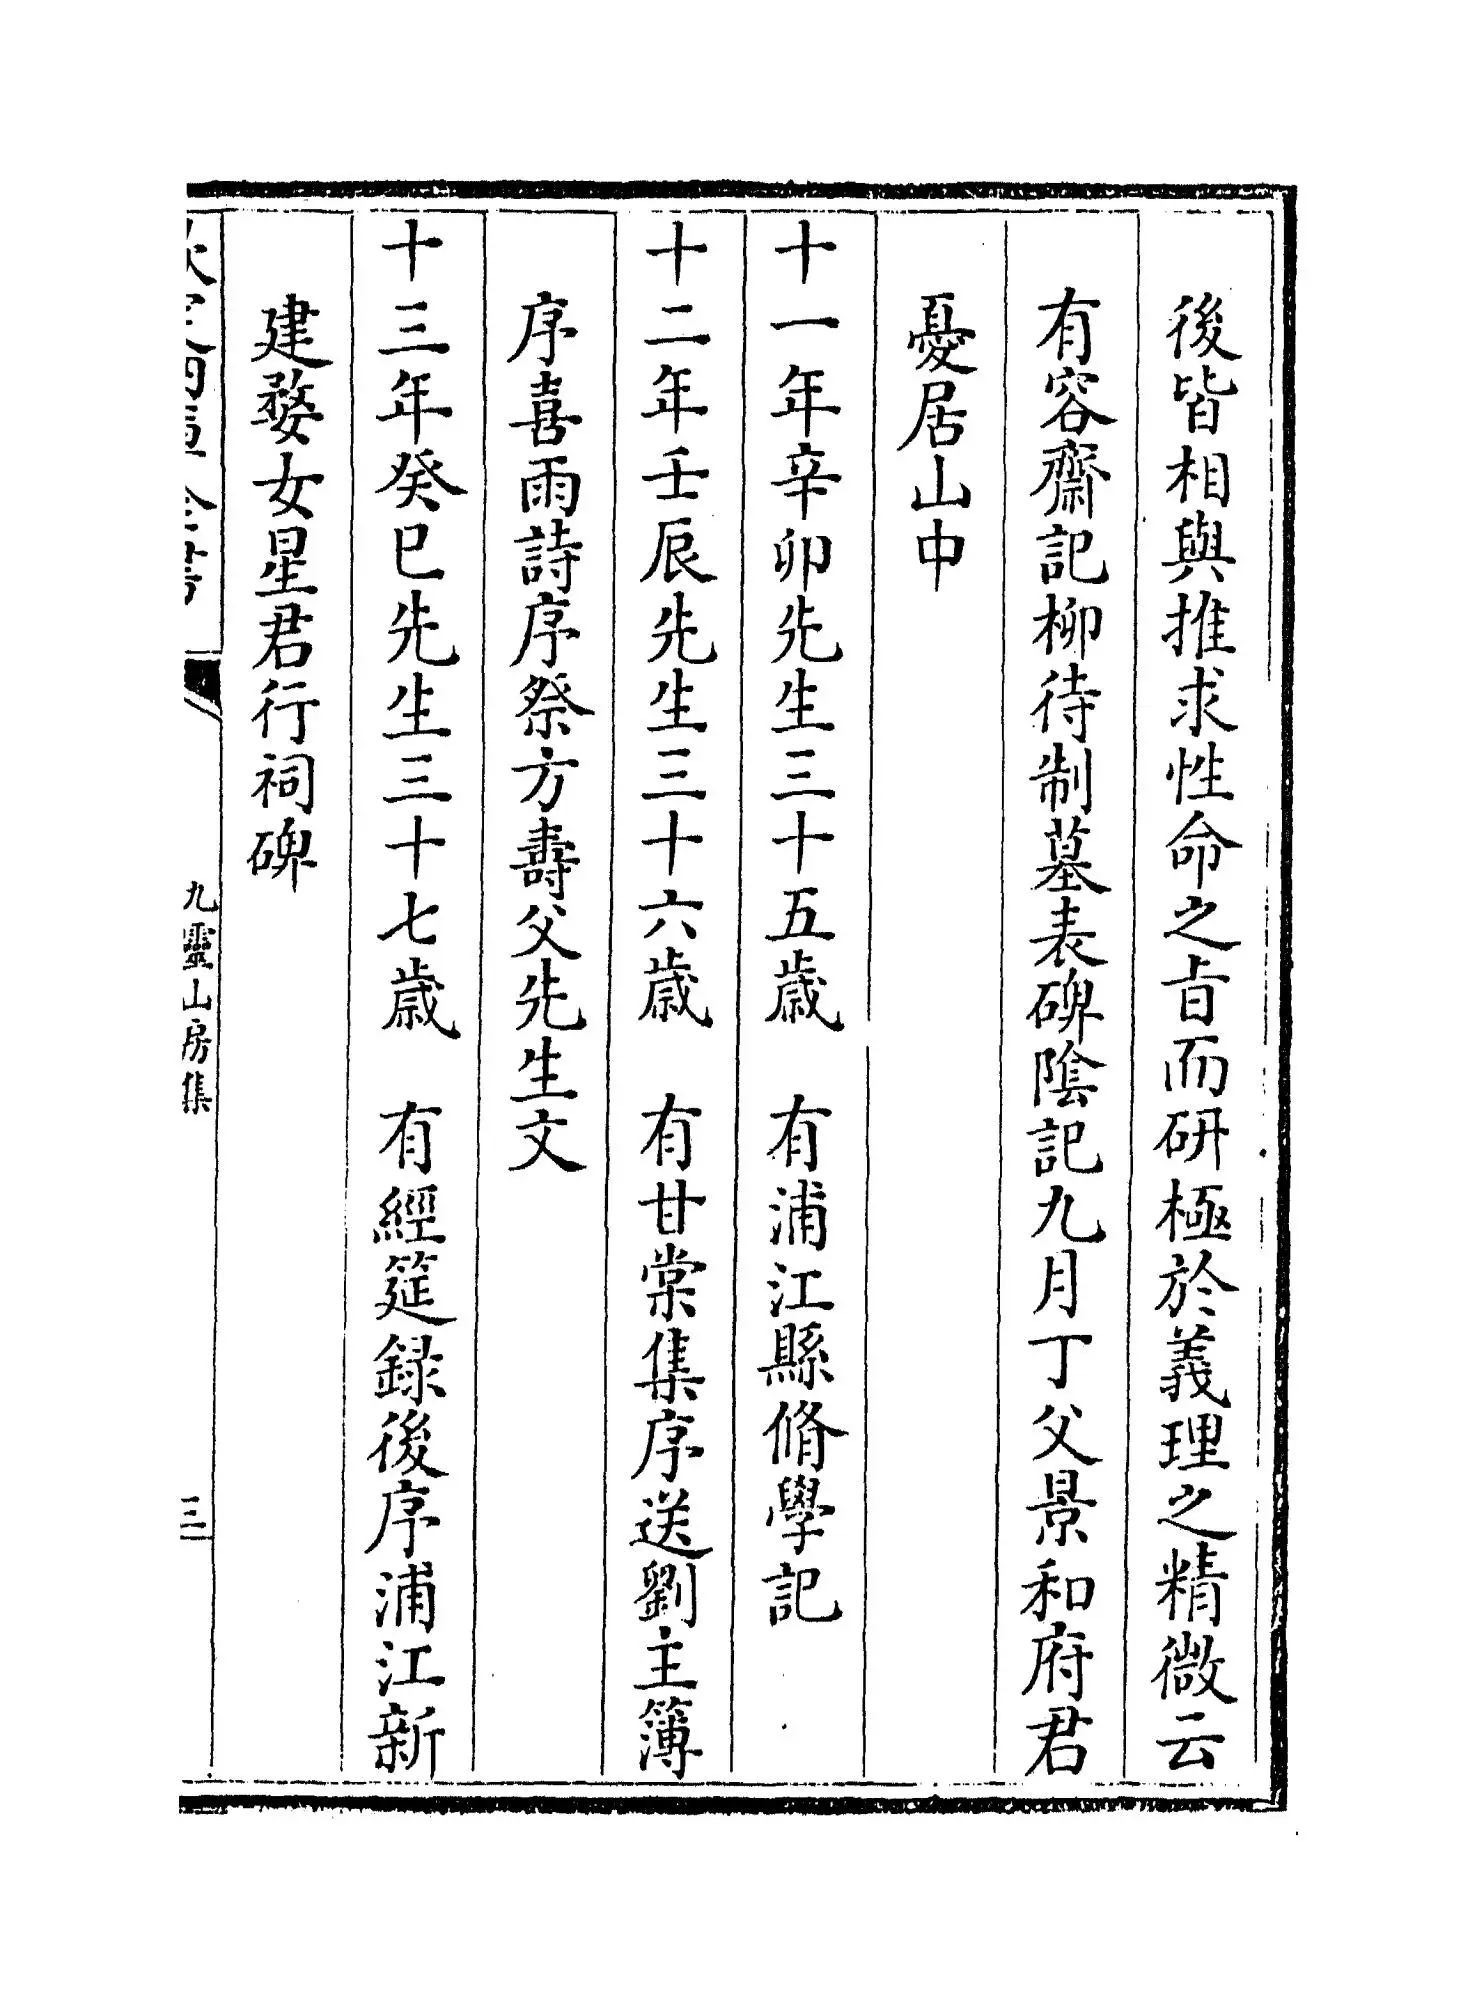 後皆相與推求性命之㫖而研極於義理之精微云
有容齋記柳待制墓表碑隂記九月丁父景和府君
憂居山中
十一年辛卯先生三十五歲　有浦江縣脩學記
十二年壬辰先生三十六歲　有甘棠集序送劉主簿
序喜雨詩序祭方壽父先生文
十三年癸巳先生三十七歲　有經筵録後序浦江新
建婺女星君行祠碑
欽定四庫全書
九靈山房集
三